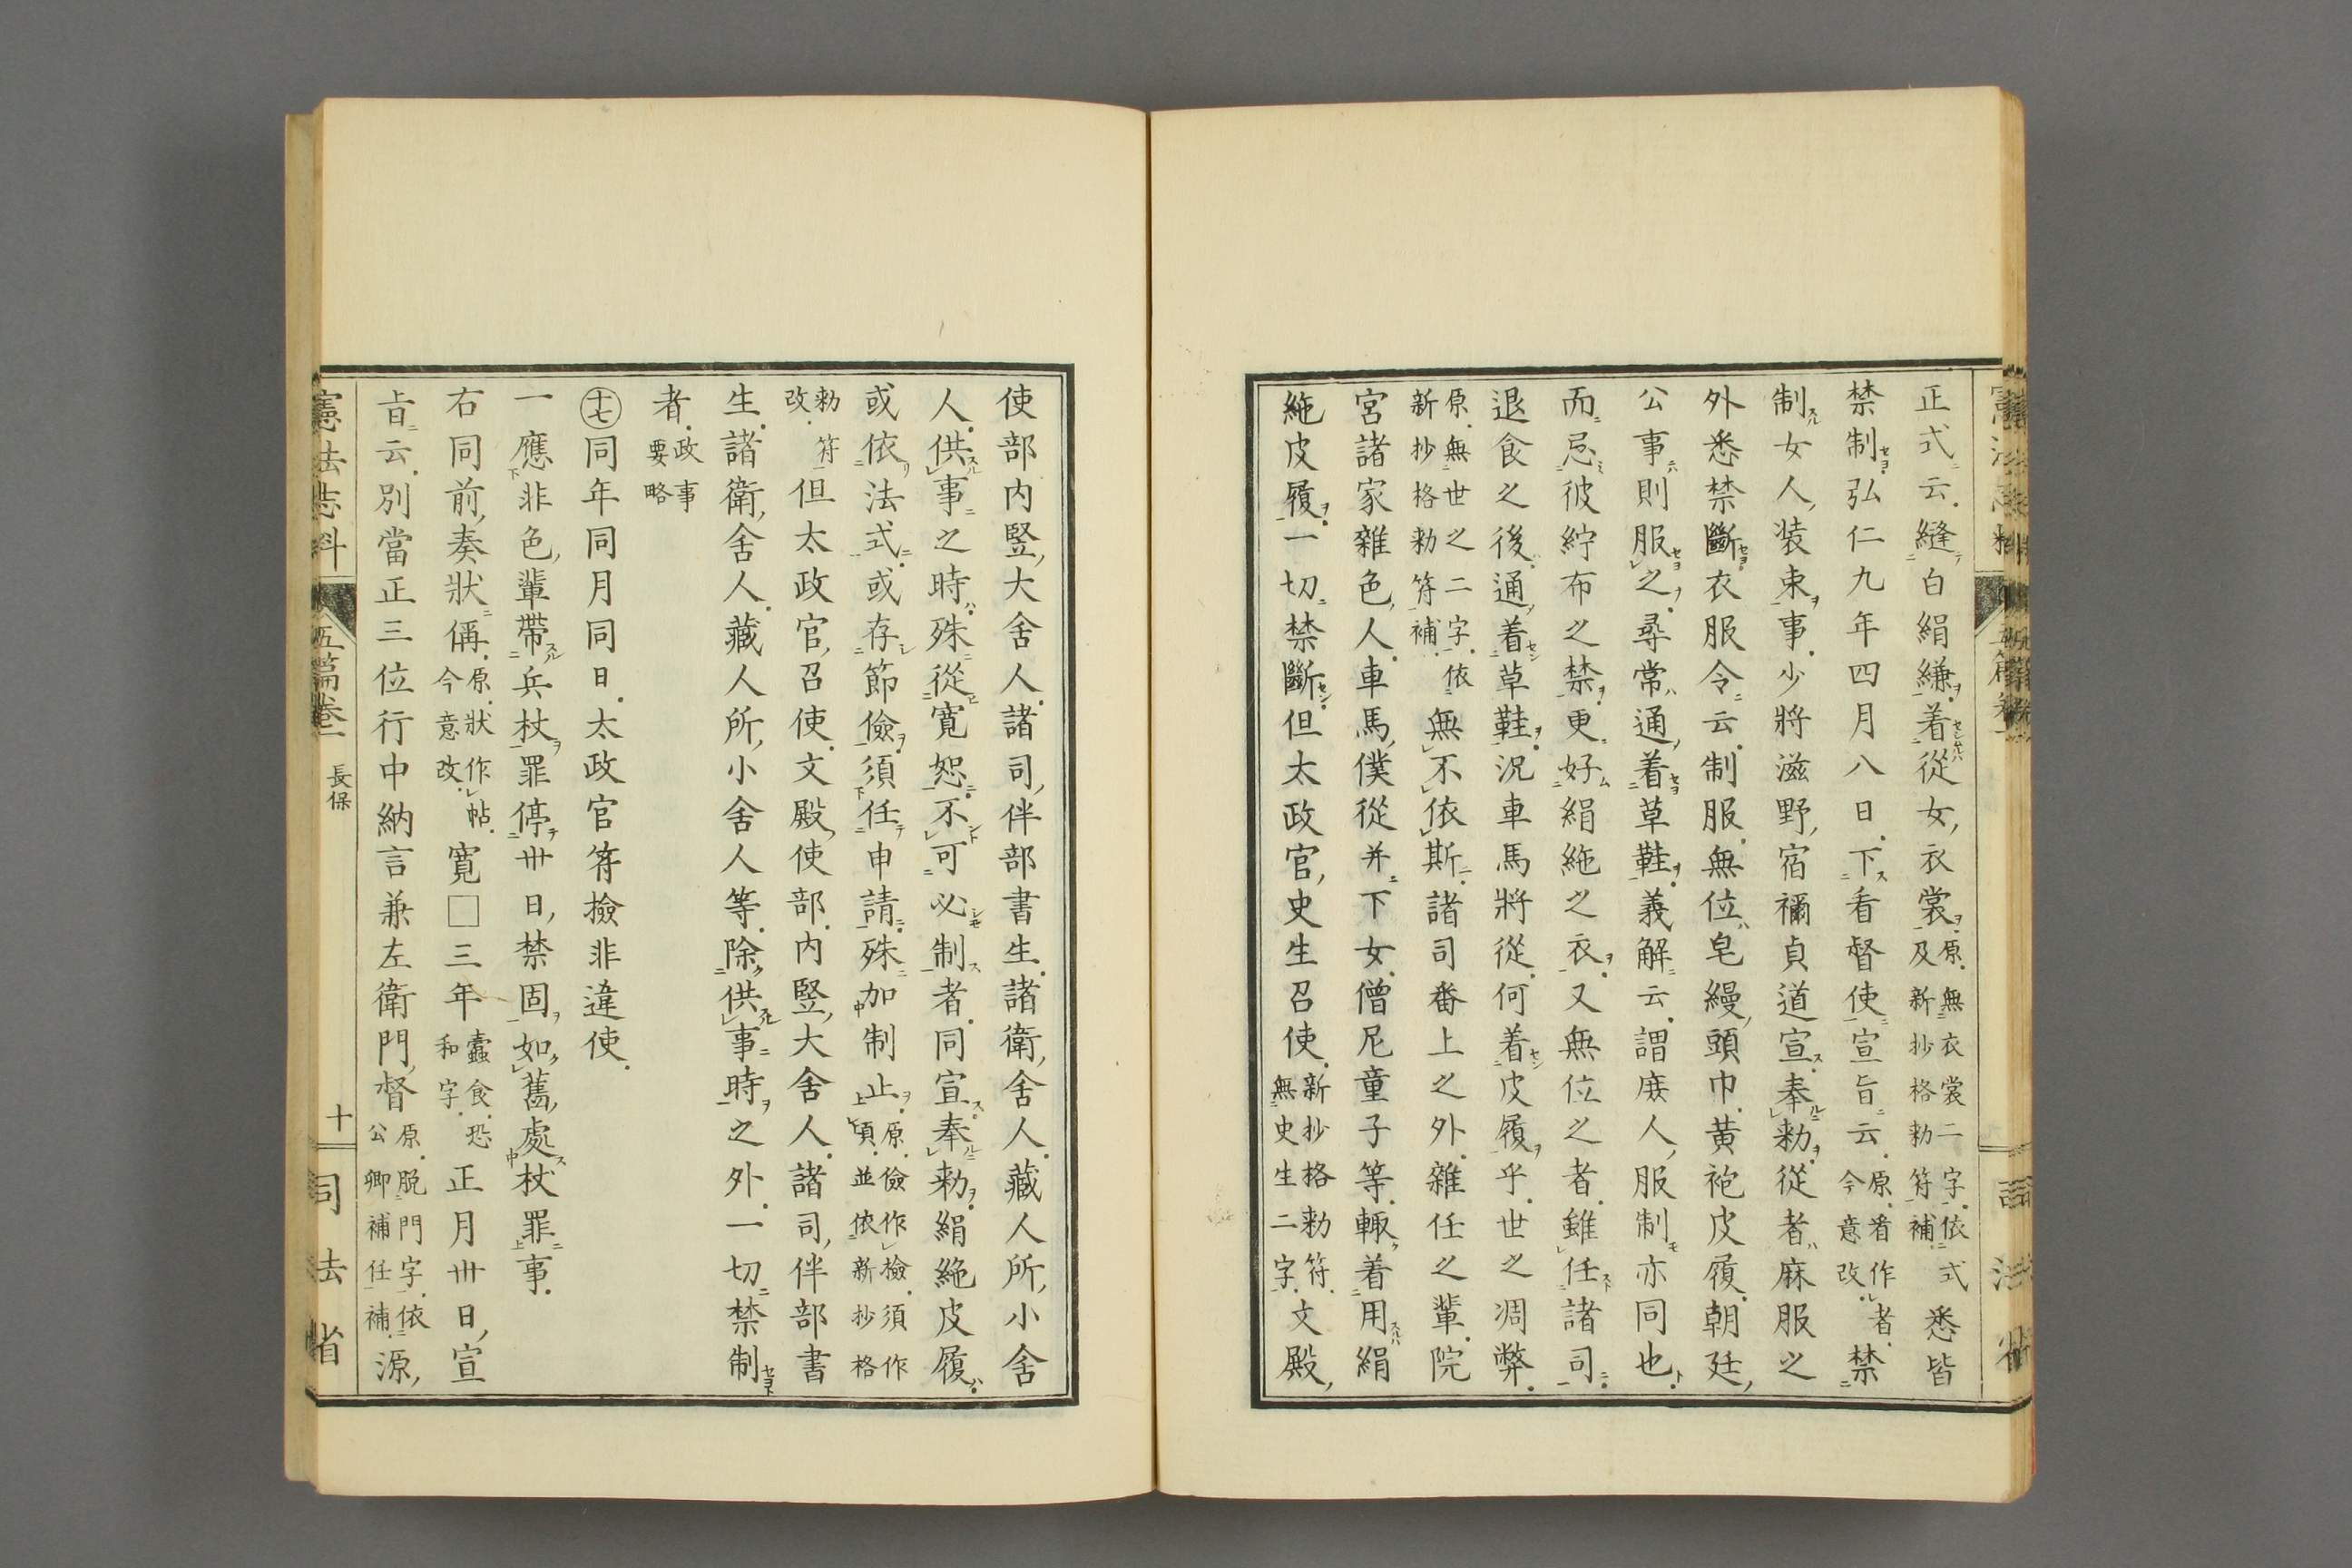 正式云縫白絹縑着從女衣裳原無衣裳二字依式及新抄格勅符補悉皆
禁制弘仁九年四月八日下看督使宣旨云原着作者今意改禁
制女人装束事少將滋野宿禰貞道宣奉勅從者麻服之
外悉禁斷衣服令云制服無位皂縵頭巾黄袍皮履朝廷
公事則服之尋常通着草鞋義解云謂庶人服制亦同也
而忌彼紵布之禁更好絹絁之衣又無位之者雖任諸司
退食之後通着草鞋況車馬將從何着皮履乎世之凋弊
原無世之二字依新抄格勅符補無不依斯諸司番上之外雜任之輩院
宮諸家雜色人車馬僕從并下女僧尼童子等輙着用絹
絁皮履一切禁斷但太政官史生召使新抄格勅符無史生二字文殿
使部内竪大舍人諸司伴部書生諸衛舍人藏人所小舍
人供事之時殊從寛恕不可必制者同宣奉勅絹絁皮履
或依法式或存節儉須任申請殊加制止原儉作檢須作頃並依新抄格
勅符改但太政官召使文殿使部内竪大舍人諸司伴部書
生諸衛舍人藏人所小舍人等除供事時之外一切禁制
者政事要略
十七同年同月同日太政官符檢非違使
一應非色輩帶兵杖罪停卅日禁固如舊處杖罪事
右同前奏狀偁原狀作帖今意改寛□三年蠹食恐和字正月卅日宣
旨云別當正三位行中納言兼左衛門督原脱門字依公卿補任補源
憲法志料 五篇卷一 長保 十 司法省